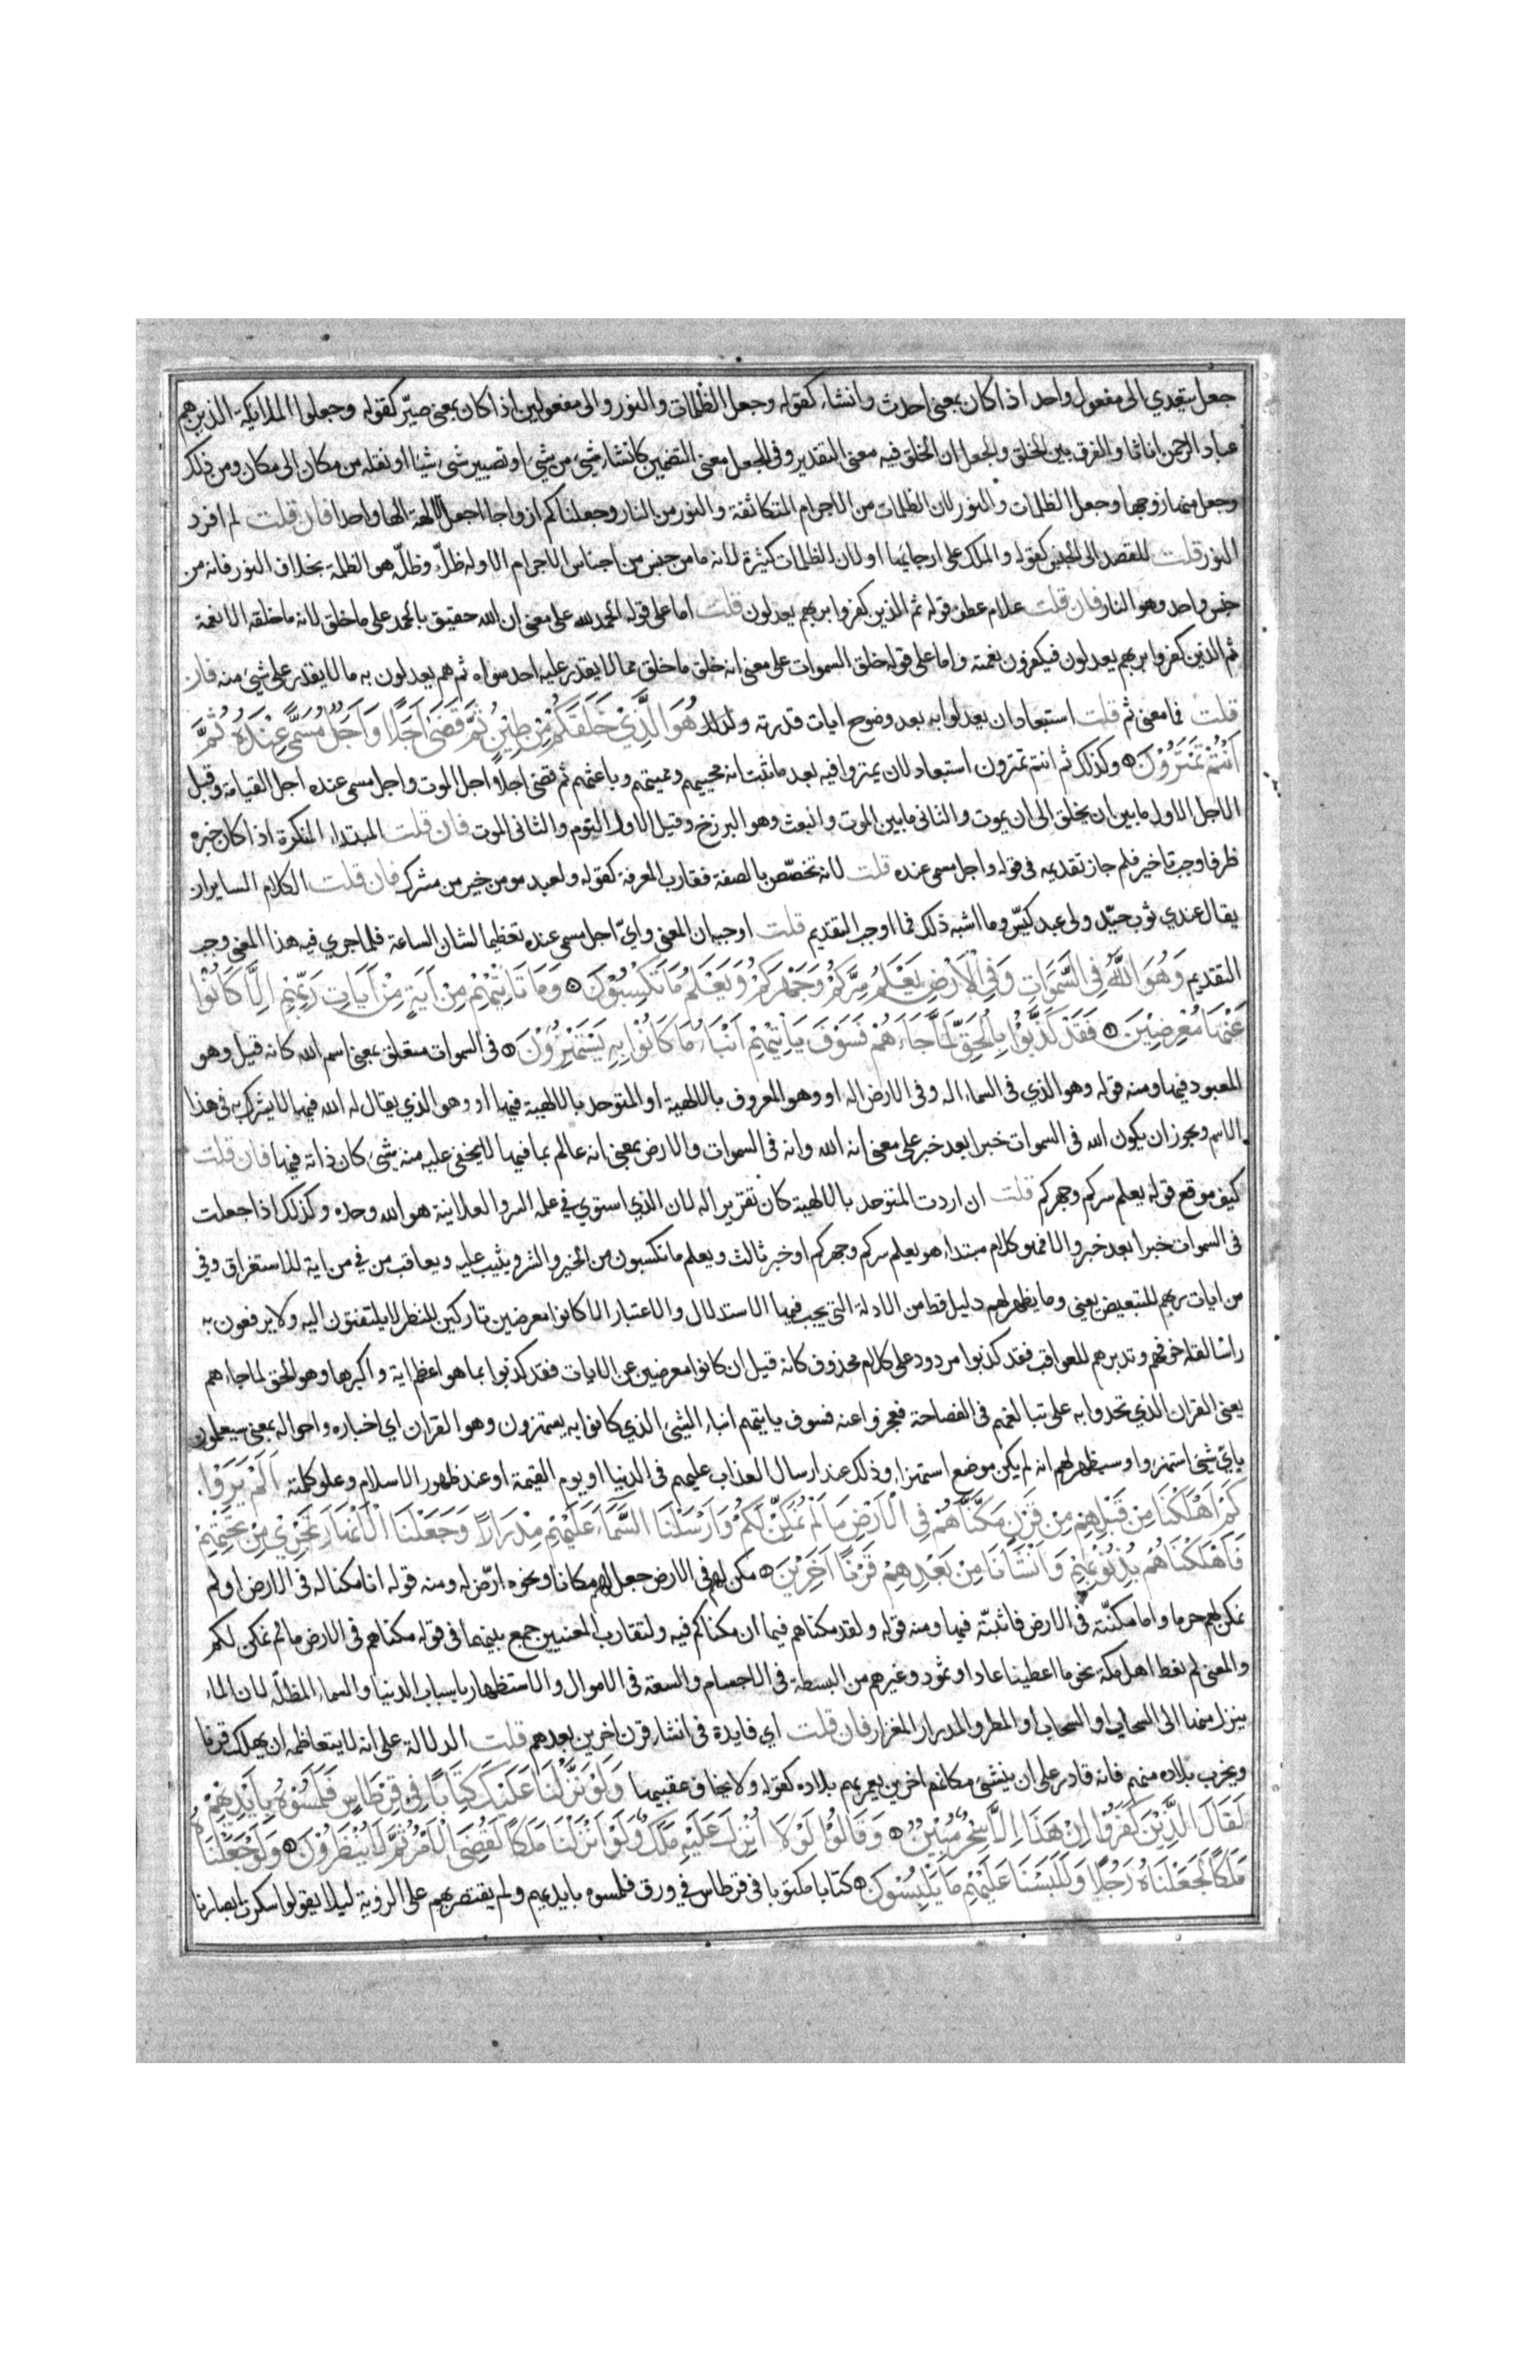 جعل يتعدي الى مفعول واحد اذا كان بمعنى احدث وانشاء كقوله وجعل الظلمات والنور والى مفعولين اذا كان بمعنى صيّر كقوله وجعلوا الملايكة الذين هم
عباد الرحمن اناثا والفرق بين الخلق والجعل ان الخلق فيه معنى التقدير وفى الجعل معنى التضمين كانشاء شيئ من شيئ او تصيير شئ شيئا او نقله من مكان الى مكان ومن ذلك
وجعل منها زوجها وجعل الظلمات والنور لان الظلمات من الاجرام المتكاثفة والنور من النار وجعلناكم ازواجا اجعل الالهة الها واحدا فان قلت لم افرد
النور قلت للقصد الى الجنس كقوله والملك على ارجائها او لان الظلمات كثيرة لانه ما من جنس من اجناس الاجرام الا وله ظلّ وظلّه هو الظلمة بخلاف النور فانه من
جنس واحد وهو النار فان قلت علام عطف قوله ثم الذين كفروا بربهم يعدلون قلت اما على قوله الحمد لله على معنى ان الله حقيق بالحمد على ما خلق لانه ما خلقه الا نعمة
ثم الذين كفروا بربهم يعدلون فيكفرون بنعمته واما على قوله خلق السموات على معنى انه خلق ما خلق مما لا يقدر عليه احد سواه ثم هم يعدلون به ما لا يقدر على شيئ منه فان
قلت فما معنى ثم قلت استبعاد ان يعدلوا به بعد وضوح ايات قدرته ولذلك هُوَ الَّذِيْ خَلَقَكُمْ مِنْ طِيْنٍ ثُمَّ قَضَى اَجَلًا وَاَجَلٌ مُسَمًّى عِنْدَهُ ثُمَّ
اَنْتُمْ تَمْتَرُوْنَ وكذلك ثم انتم تمترون استبعاد لان يمتروا فيه بعد ما ثبت انه محييهم ومميتهم وباعثهم ثم قضى اجلا اجل الموت واجل مسمى عنده اجل القيامة وقيل
الاجل الاول ما بين ان يخلق الى ان يموت والثانى ما بين الموت والبعث وهو البرزخ وقيل الاول النوم والثانى الموت فان قلت المبتداء النكرة اذا كان خبره
ظرفا وجب تاخير فلم جاز تقديمه فى قوله واجل مسمى عنده قلت لانه تخصّص بالصفة فقارب المعرفة كقوله ولعبد مومن خير من مشرك فان قلت الكلام الساير ان
يقال عندي ثوب جيّد ولى عبد كيّس وما اشبه ذلك فما اوجب التقديم قلت اوجبه ان المعنى وايّ اجل مسمى عنده تعظيما لشان الساعة فلما جري فيه هذا المعنى وجب
التقديم وَهُوَ اللَّهُ فِى السَّمَوَاتِ وَفِى الْاَرْضِ يَعْلَمُ سِرَّكُمْ وَجَهْرَكُمْ وَيَعْلَمُ مَا تَكْسِبُوْنَ وَمَا تَاْتِيْهِمْ مِنْ اَيَةٍ مِنْ اَيَاتِ رَبِّهِمْ اِلَّا كَانُوْا
عَنْهَا مُعْرِضِيْنَ فَقَدْ كَذَّبُوْا بِالْحَقِّ لَمَّا جَاءَهُمْ فَسَوْفَ يَاْتِيْهِمْ اَنْبَاءُ مَا كَانُوْا بِهِ يَسْتَهْزِئُوْنَ فى السموات متعلق بمعنى اسم الله كانه قيل وهو
المعبود فيها ومنه قوله وهو الذي فى السماء اله وفى الارض اله او وهو المعروف بالالهية او المتوحد بالالهية فيها او وهو الذي يقال له الله فيها لا يشرك به فى هذا
الاسم ويجوز ان يكون الله فى السموات خبرا بعد خبر على معنى انه الله وانه فى السموات والارض بمعنى انه عالم بما فيها لا يخفى عليه منه شئ كان ذاته فيها فان قلت
كيف موقع قوله يعلم سركم وجهركم قلت ان اردت المتوحد بالالهية كان تقريرا له لان الذي استوي في علمه السر والعلانية هو الله وحده وكذلك اذا جعلت
فى السموات خبرا بعد خبر والا فهو كلام مبتداء هو يعلم سركم وجهركم او خبر ثالث ويعلم ما تكسبون من الخير والشر ويثيب عليه ويعاقب من في من اية للاستغراق وفي
من ايات ربهم للتبعيض يعنى وما يظهر لهم دليل قط من الادلة التى يجب فيها الاستدلال والاعتبار الا كانوا معرضين تاركين للنظر لا يلتفتون اليه ولا يرفعون به
راسا لقلة خوفهم وتدبرهم للعواقب فقد كذبوا مردود على كلام محذوف كانه قيل ان كانوا معرضين عن الايات فقد كذبوا بما هو اعظم اية واكبرها وهو الحق لما جاءهم
يعنى القران الذي تحدوا به على تبالغهم فى الفصاحة فعجزوا عنه فسوف ياتيهم انباء الشيئ الذي كانوا به يستهزون وهو القران اي اخباره واحواله بمعنى سيعلمون
بايّ شيئ استهزوا وسيظهر لهم انه لم يكن موضع استهزاء وذلك عند ارسال العذاب عليهم فى الدنيا او يوم القيمة او عند ظهور الاسلام وعلو كلمته اَلَمْ يَرَوْا
كَمْ اَهْلَكْنَا مِنْ قَبْلِهِمْ مِنْ قَرْنٍ مَكَّنَّاهُمْ فِى الْاَرْضِ مَا لَمْ نُمَكِّنْ لَكُمْ وَاَرْسَلْنَا السَّمَاءَ عَلَيْهِمْ مِدْرَارًا وَجَعَلْنَا الْاَنْهَارَ تَجْرِيْ مِنْ تَحْتِهِمْ
فَاَهْلَكْنَاهُمْ بِذُنُوْبِهِمْ وَاَنْشَاْنَا مِنْ بَعْدِهِمْ قَرْنًا اَخَرِيْنَ مكن لهم فى الارض جعل لهم مكانا ونحوه ارّض له ومنه قوله انا مكنا له فى الارض اولم
نمكن لهم حرما واما مكنّته فى الارض فاثبتّه فيها ومنه قوله ولقد مكناهم فيما ان مكناكم فيه ولتقارب المعنيين جمع بينهما فى قوله مكناهم فى الارض ما لم نمكن لكم
والمعنى لم نعط اهل مكة نحو ما اعطينا عادا وثمود وغيرهم من البسطة فى الاجسام والسعة فى الاموال والاستظهار باسباب الدنيا والسماء المظلّة لان الماء
ينزل منها الى السحاب او السحاب او المطر والمدرار المغزار فان قلت اي فايدة فى انشاء قرن اخرين بعدهم قلت الدلالة على انه لا يتعاظمه ان يهلك قرنا
ويخرب بلاده منهم فانه قادر على ان ينشئ مكانهم اخرين يعمر بهم بلاده كقوله ولا يخاف عقبيها وَلَوْ نَزَّلْنَا عَلَيْكَ كِتَابًا فِى قِرْطَاسٍ فَلَمَسُوْهُ بِاَيْدِيْهِمْ
لَقَالَ الَّذِيْنَ كَفَرُوْا اِنْ هَذَا اِلَّا سِحْرٌ مُبِيْنٌ وَقَالُوْا لَوْلَا اُنْزِلَ عَلَيْهِ مَلَكٌ وَلَوْ اَنْزَلْنَا مَلَكًا لَقُضِىَ الْاَمْرُ ثُمَّ لَا يُنْظَرُوْنَ وَلَوْ جَعَلْنَاهُ
مَلَكًا لَجَعَلْنَاهُ رَجُلًا وَلَلَبَسْنَا عَلَيْهِمْ مَا يَلْبِسُوْنَ كتابا مكتوبا فى قرطاس في ورق فلمسوه بايديهم ولم يقتصر بهم على الروية ليلا يقولوا سكرت ابصارنا